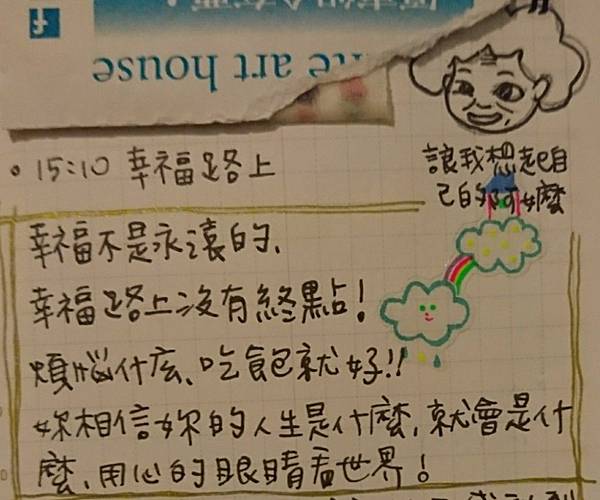 art house
15:10 幸福路上
讓我想起自
己的阿嬤
幸福不是永遠的、
幸福路上沒有終點!
煩惱什么、吃飽就好!!
妳相信妳的人生是什麼,就會是什
麼,用心的眼睛看世界!